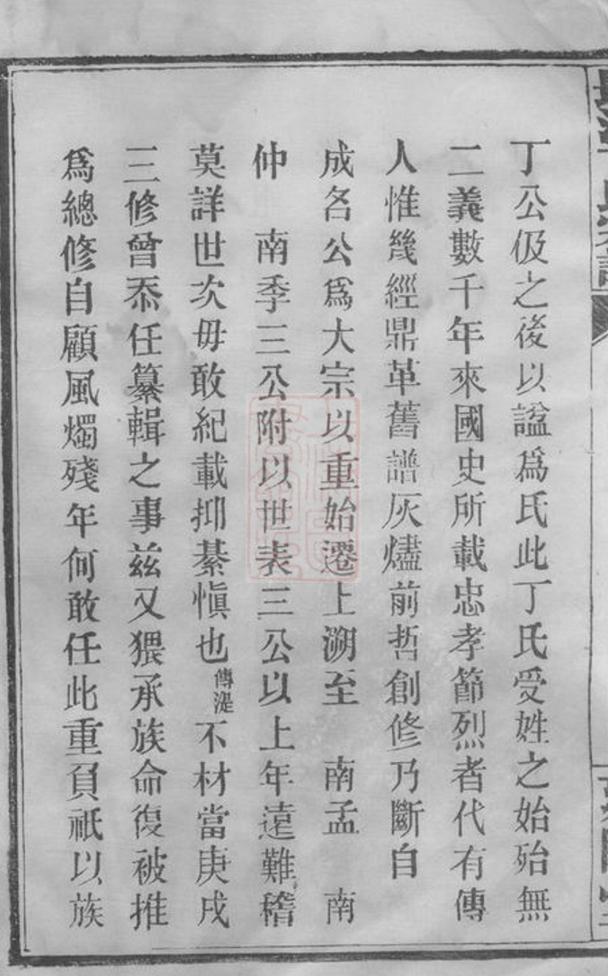 丁公伋之後以諡爲氏此丁氏受姓之始殆無
二義數千年來國史所載忠孝節烈者代有傳
人惟幾經鼎革舊譜灰燼前哲創修乃斷自
成名公爲大宗以重始遷上溯至 南孟 南
仲 南季三公附以世表三公以上年遠難稽
莫詳世次毋敢紀載抑綦愼也傳湜不材當庚戌
三修曾忝任纂輯之事茲又猥承族命復被推
爲總修自顧風燭殘年何敢任此重負祇以族